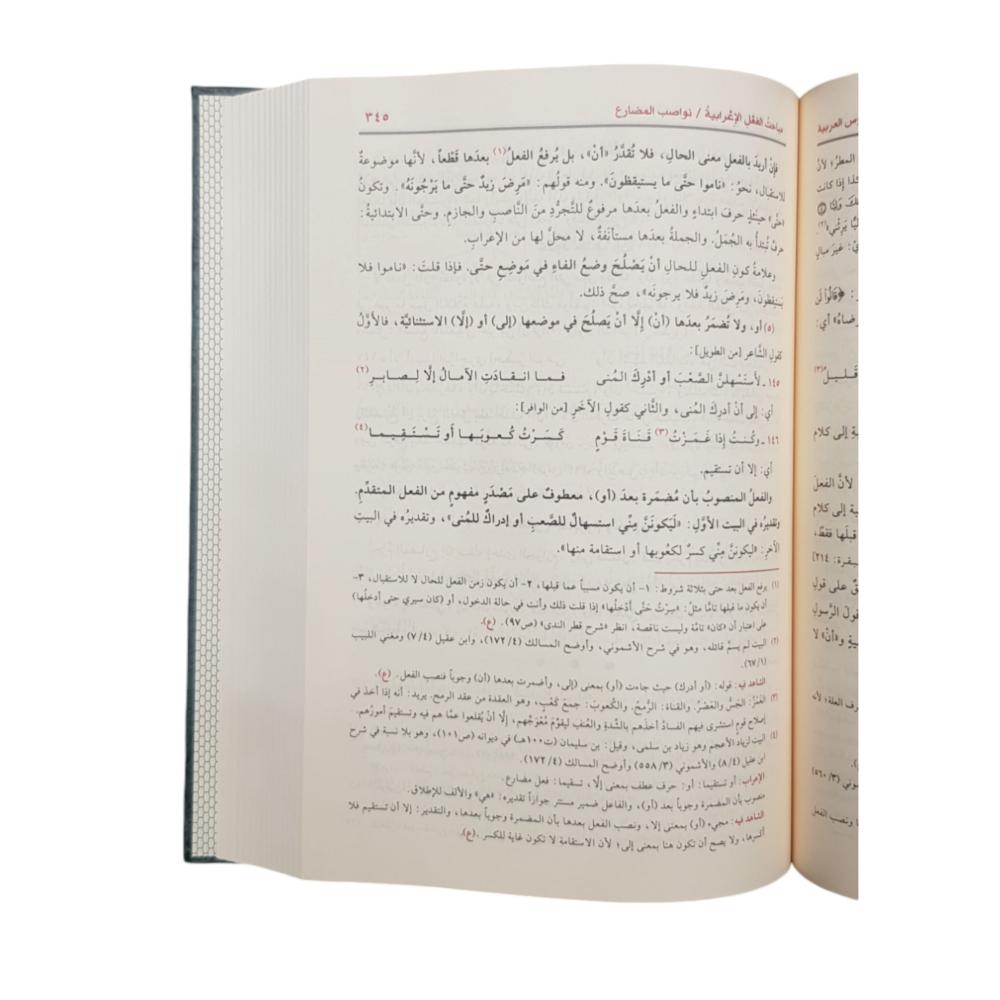 مباحث الفعل الإعرابية / نواصب المضارع ٣٤٥
فإنْ أريدَ بالفعلِ معنى الحالِ، فلا تُقدَّرُ «أنْ»، بل يُرفعُ الفعلُ(١) بعدَها قَطْعاً، لأنَّها موضوعةٌ
للاستقبال، نحوُ: «ناموا حتَّى ما يستيقظونَ». ومنه قولُهم: «مَرِضَ زيدٌ حتَّى ما يَرْجُونَهُ». وتكونُ
«حتَّى» حينئذٍ حرفَ ابتداءٍ والفعلُ بعدَها مرفوعٌ للتَّجرُّدِ منَ النَّاصبِ والجازمِ. وحتَّى الابتدائيةُ:
حرفٌ تُبتدأُ به الجُمَلُ. والجملةُ بعدَها مستأنَفةٌ، لا محلَّ لها من الإعرابِ.
وعلامةُ كونِ الفعلِ للحالِ أنْ يَصْلُحَ وضعُ الفاءِ في مَوضِعِ حتَّى. فإذا قلتَ: «ناموا فلا
يستيقظونَ، ومَرِضَ زيدٌ فلا يرجونَه»، صحَّ ذلك.
(٥) أو، ولا تُضمَرُ بعدَها (أنْ) إلَّا أنْ يَصلُحَ في موضعها (إلى) أو (إلَّا) الاستثنائيَّة، فالأوَّلُ
كقولِ الشَّاعرِ [من الطويل]:
١٤٥ـ لأَستَسْهِلنَّ الصَّعْبَ أو أُدْرِكَ المُنى فـمـا انـقـادَتِ الآمـالُ إلَّا لِـصـابـرِ(٢)
أي: إلى أنْ أدرِكَ المُنى، والثَّاني كقولِ الآخَرِ [من الوافر]:
١٤٦ـ وكُـنـتُ إذا غَـمَـزْتُ(٣) قَـنـاةَ قَـوْمٍ كَـسَـرْتُ كُـعـوبَـهـا أَو تَـسْـتَـقِـيـمـا(٤)
أي: إلا أن تستقيم.
والفعلُ المنصوبُ بأن مُضمَرة بعدَ (أو)، معطوفٌ على مَصْدَرٍ مفهومٍ من الفعل المتقدِّمِ.
وتقديرُه في البيت الأوَّلِ: «لَيَكونَنَّ مِنِّي استسهالٌ للصَّعبِ أو إدراكٌ للمُنى»، وتقديرُه في البيتِ
الآخَرِ: «ليكوننَّ مِنِّي كسرٌ لكعُوبها أو استقامة منها».
(١) يرفع الفعل بعد حتى بثلاثة شروط: ١- أن يكون مسبباً عما قبلها، ٢- أن يكون زمن الفعل للحال لا للاستقبال، ٣-
أن يكون ما قبلها تامًّا مثلُ: «سِرْتُ حَتَّى أدْخلُها» إذا قلت ذلك وأنت في حالة الدخول، أو (كان سيري حتى أدخلُها)
على اعتبار أن «كان» تامَّة وليست ناقصة، انظر «شرح قطر الندى» (ص٩٧). (ع).
(٢) البيت لم يسمَّ قائله، وهو في شرح الأشموني، وأوضح المسالك (٤/ ١٧٢)، وابن عقيل (٤/ ٧) ومغني اللبيب
(١/ ٦٧).
الشاهد فيه: قوله: (أو أدرك) حيث جاءت (أو) بمعنى (إلى، وأضمرت بعدها (أن) وجوباً فنصب الفعل. (ع).
(٣) الغَمْزُ: الجَسُّ والعَصْرُ. والقناة: الرُّمحُ. والكُعوبُ: جمعُ كَعْبٍ، وهو العقدة من عقد الرمح. يريد: أنه إذا أخذ في
إصلاح قوم استشرى فيهم الفسادُ أخذهم بالشِّدةِ والعُنف ليقوِّمَ مُعْوَجَّهم، إلَّا أنْ يُقلعوا عمَّا هم فيه وتستقيمَ أمورُهم.
(٤) البيت لزياد الأعجم وهو زياد بن سلمى، وقيل: بن سليمان (ت١٠٠هـ) في ديوانه (ص١٠١)، وهو بلا نسبة في شرح
ابن عقيل (٤/ ٨) والأشموني (٣/ ٥٥٨) وأوضح المسالك (٤/ ١٧٢).
الإعراب: أو تستقيما: أو: حرف عطف بمعنى إلَّا، تستقيما: فعل مضارع.
منصوب بأن المضمرة وجوباً بعد (أو)، والفاعل ضمير مستتر جوازاً تقديره: «هي» والألف للإطلاق.
الشاهد فيه: مجيء (أو) بمعنى إلا، ونصب الفعل بعدها بأن المضمرة وجوباً بعدها، والتقدير: إلا أن تستقيم فلا
أكسرها، ولا يصح أن تكون هنا بمعنى إلى؛ لأن الاستقامة لا تكون غاية للكسر. (ع).